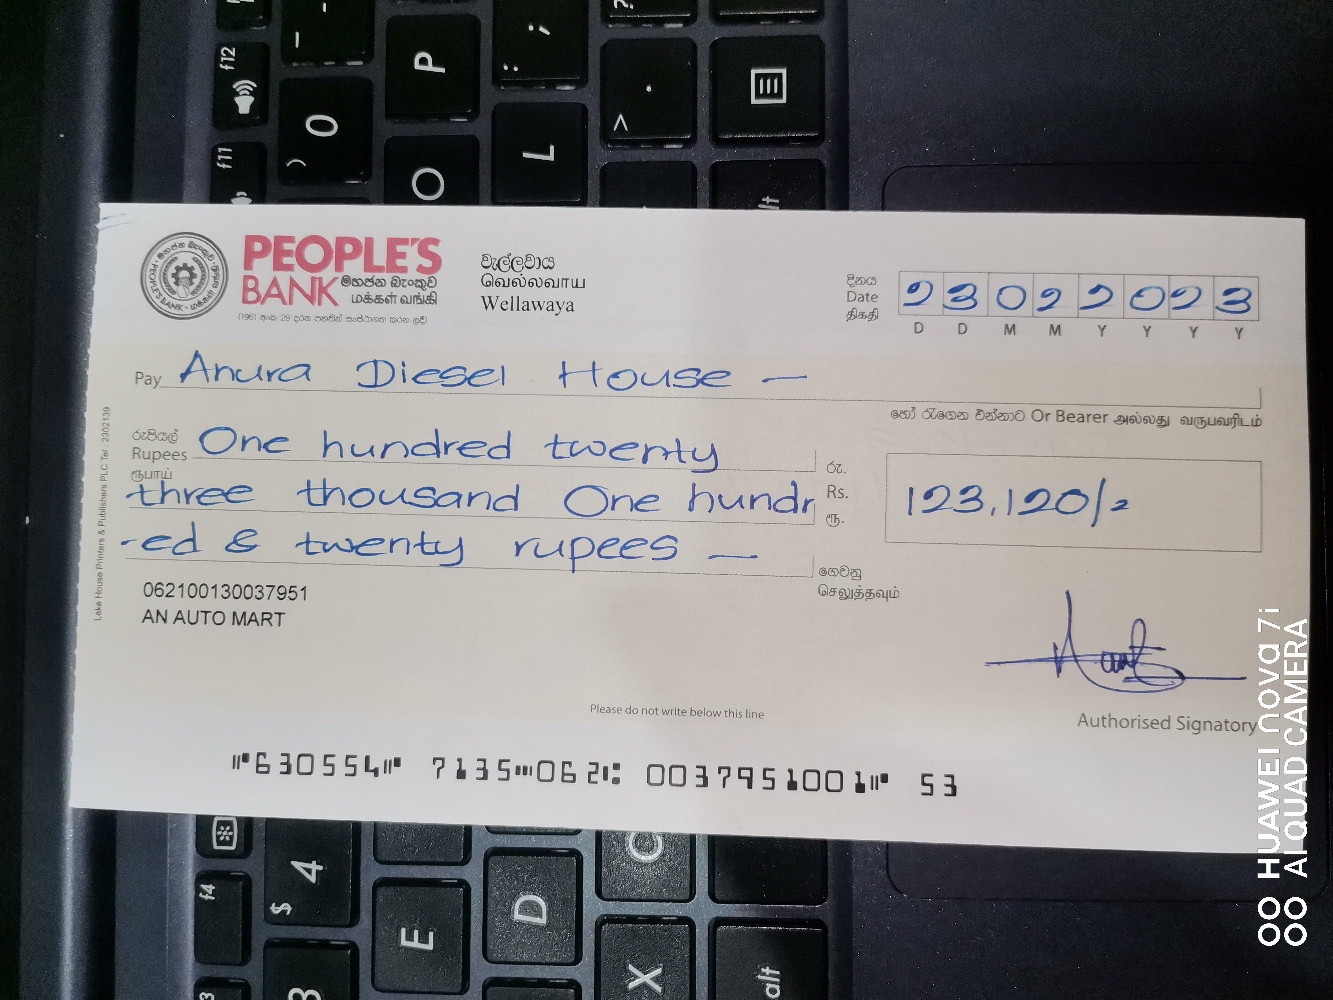 PEOPLE'S
BANK මහජන බැංකුව
மக்கள் வங்கி
(1961 අංක 29 දරන පනතින් සංස්ථාගත කරන ලදී)
වැල්ලවාය
வெல்லவாய
Wellawaya
දිනය
Date
திகதி
23 02 2023
D D M M Y Y Y Y
Pay Anura Diesel House —
හෝ රැගෙන එන්නාට Or Bearer அல்லது வருபவரிடம்
රුපියල්
Rupees
ரூபாய்
One hundred twenty
three thousand One hundr
-ed & twenty rupees —
රු.
Rs.
ரூ.
123,120/=
ගෙවනු
செலுத்தவும்
062100130037951
AN AUTO MART
Please do not write below this line
Authorised Signatory
⑈630554⑈ 7135⑉062⑆ 0037951001⑈ 53
Lake House Printers & Publishers PLC Tel : 2302139
HUAWEI nova 7i
AI QUAD CAMERA
f12
f11
f4
P
O
L
0
)
;
:
>
.
alt
4
$
E
D
C
X
3
alt